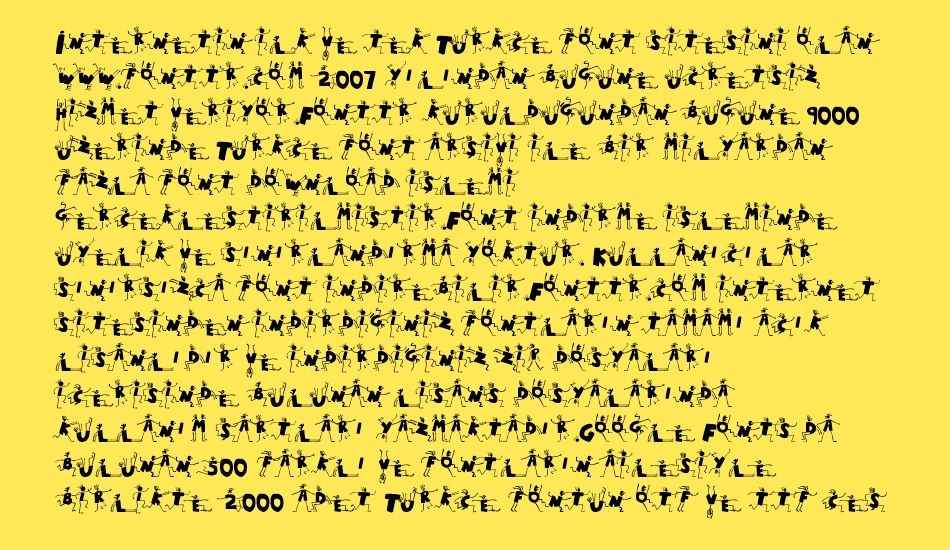 İnternetin ilk ve tek Türkçe font sitesini olan
www.fonttr.com 2007 yılından bugüne ücretsiz
hizmet veriyor.Fonttr kurulduğundan bugüne 9000
üzerinde Türkçe font arşivi ile bir milyardan
fazla font download işlemi
gerçekleştirilmiştir.Font indirme işleminde
üyelik ve sınırlandırma yoktur. Kullanıcılar
sınırsızca font indirebilir.Fonttr.com internet
sitesinden indirdiğiniz fontların tamamı açık
lisanlıdır ve indirdiğiniz zip dosyaları
içerisinde bulunan lisans dosyalarında
kullanım şartları yazmaktadır.Google Fonts da
bulunan 500 farklı ve fontların ailesiyle
birlikte 2.000 adet Türkçe fontun otf ve ttf çeş